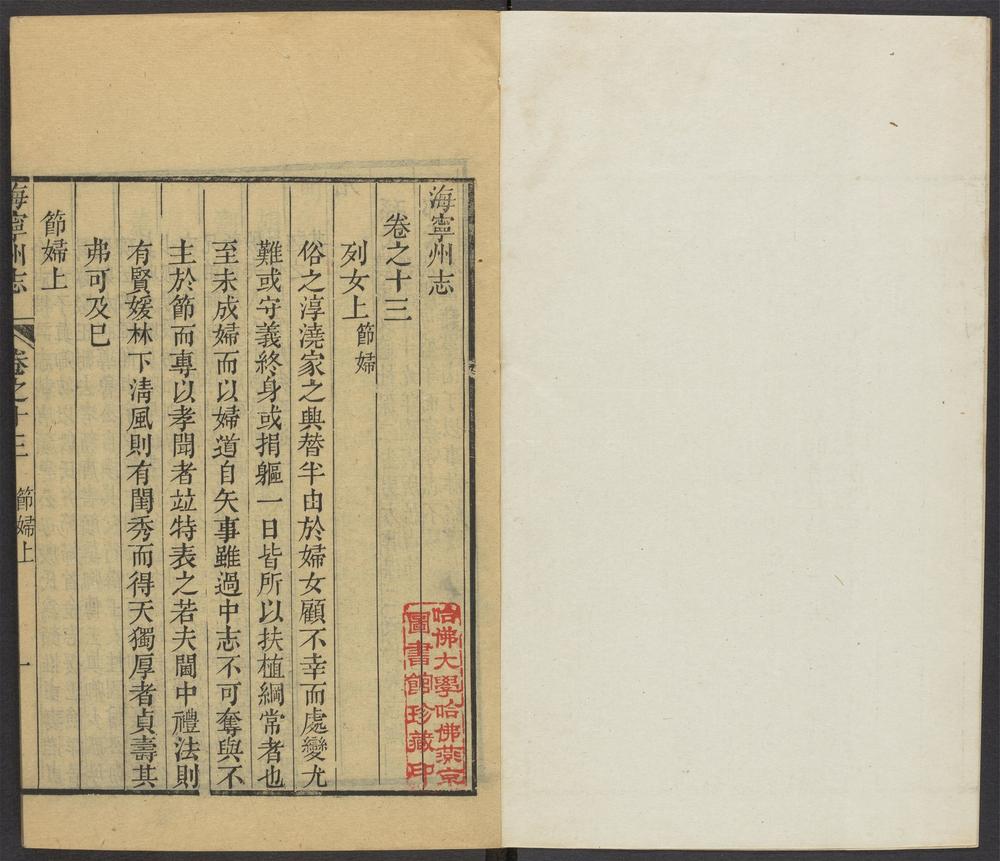 海寧州志
卷之十三
列女上節婦
俗之淳澆家之興替半由於婦女顧不幸而處變尤
難或守義終身或捐軀一日皆所以扶植綱常者也
至未成婦而以婦道自矢事雖過中志不可奪與不
主於節而專以孝聞者竝特表之若夫閫中禮法則
有賢媛林下清風則有閨秀而得天獨厚者貞壽其
弗可及巳
節婦上
海寧州志 卷之十三 節婦上 一
哈佛大學哈佛燕京
圖書館珍藏印